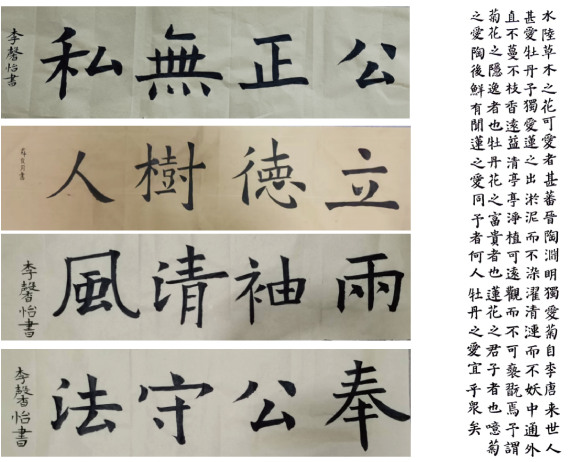 公正無私
李馨怡書
立徳樹人
兩袖清風
李馨怡書
奉公守法
李馨怡書
水陸草木之花可愛者甚蕃晉陶淵明獨愛菊自李唐来世人
甚愛牡丹予獨愛蓮之出淤泥而不染濯清漣而不妖中通外
直不蔓不枝香遠益清亭亭淨植可遠觀而不可褻翫焉予謂
菊花之隱逸者也牡丹花之富貴者也蓮花之君子者也噫菊
之愛陶後鮮有聞蓮之愛同予者何人牡丹之愛宜乎衆矣